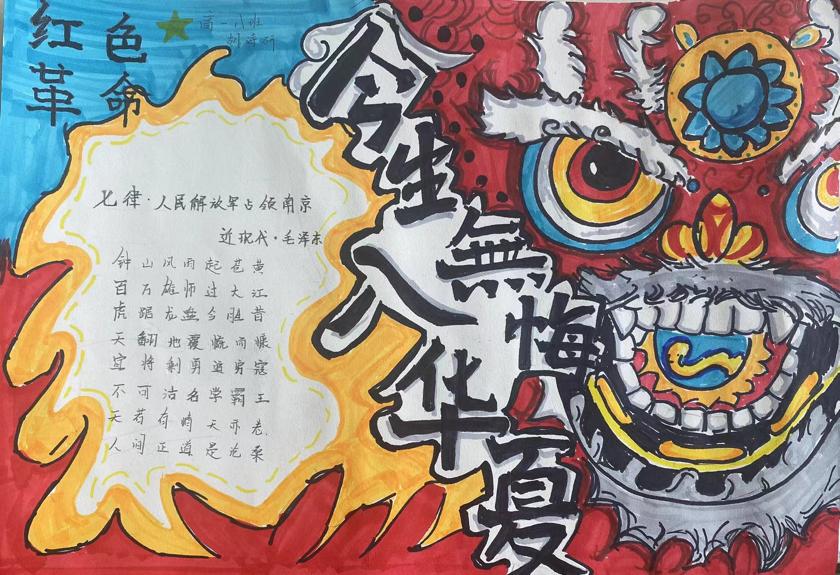 红色
革命
高一八班
七律·人民解放军占领南京
近现代·毛泽东
钟山风雨起苍黄
百万雄师过大江
虎踞龙盘今胜昔
天翻地覆慨而慷
宜将剩勇追穷寇
不可沽名学霸王
天若有情天亦老
人间正道是沧桑
今生無悔
入华夏